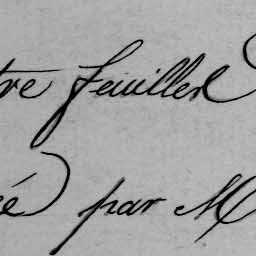 tre feuillet
é par M